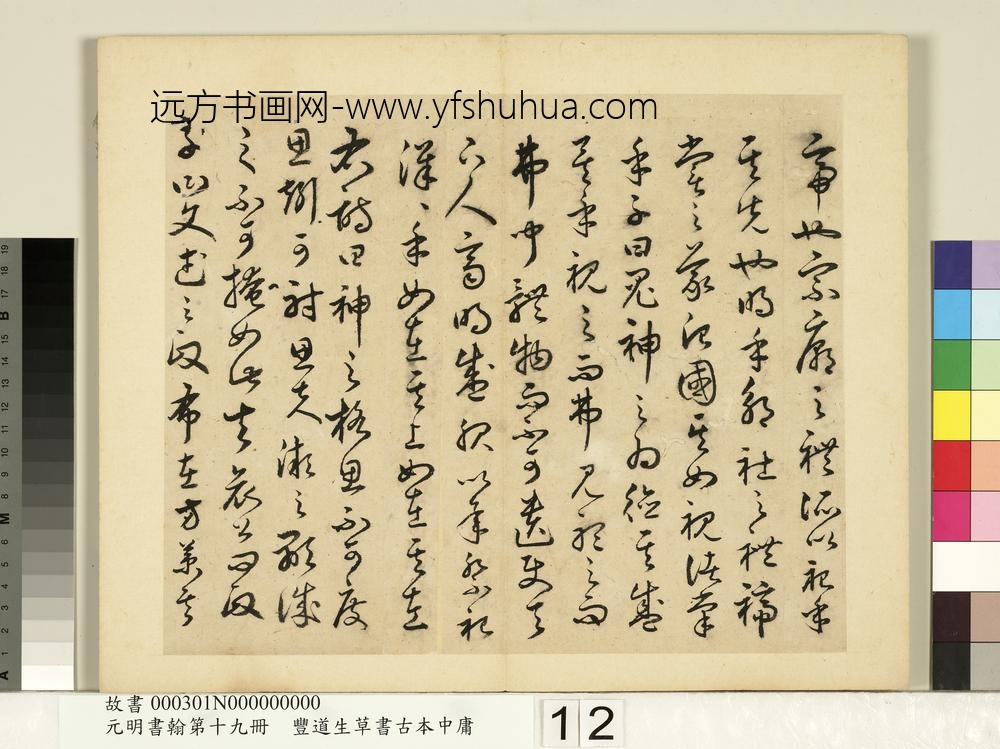 远方书画网-www.yfshuhua.com
帝也宗廟之禮所以祀乎
其先也明乎郊社之禮禘
嘗之義治國其如視諸掌
乎子曰鬼神之為德其盛
矣乎視之而弗見聽之而
弗聞體物而不可遺使天
下人齊明盛服以承祭祀
洋洋乎如在其上如在其左
右詩曰神之格思不可度
思矧可射思夫微之顯誠
之不可掩如此夫哀公問政
子曰文武之政布在方策其
故書 000301N000000000
元明書翰第十九冊 豐道生草書古本中庸
12